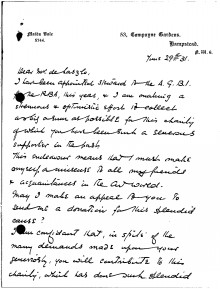 Maida Vale
53, Compayne Gardens,
Hampstead,
N.W.6.
June 29th 31.
Dear Mr. de Laszlo,
I have been appointed Steward to the A.G.B.I.
for the RBA, this year, & I am making a
strenuous & optimistic effort to collect
as big a sum as possible for this charity
of which you have been such a generous
supporter in the past.
This endeavour means that I must make
myself a nuisance to all my friends
& acquaintances in the Art world.
May I make an appeal to you to
send me a donation for this splendid
cause?
I am confident that, in spite of the
many demands made upon your
generosity, you will contribute to this
charity, which has done such splendid